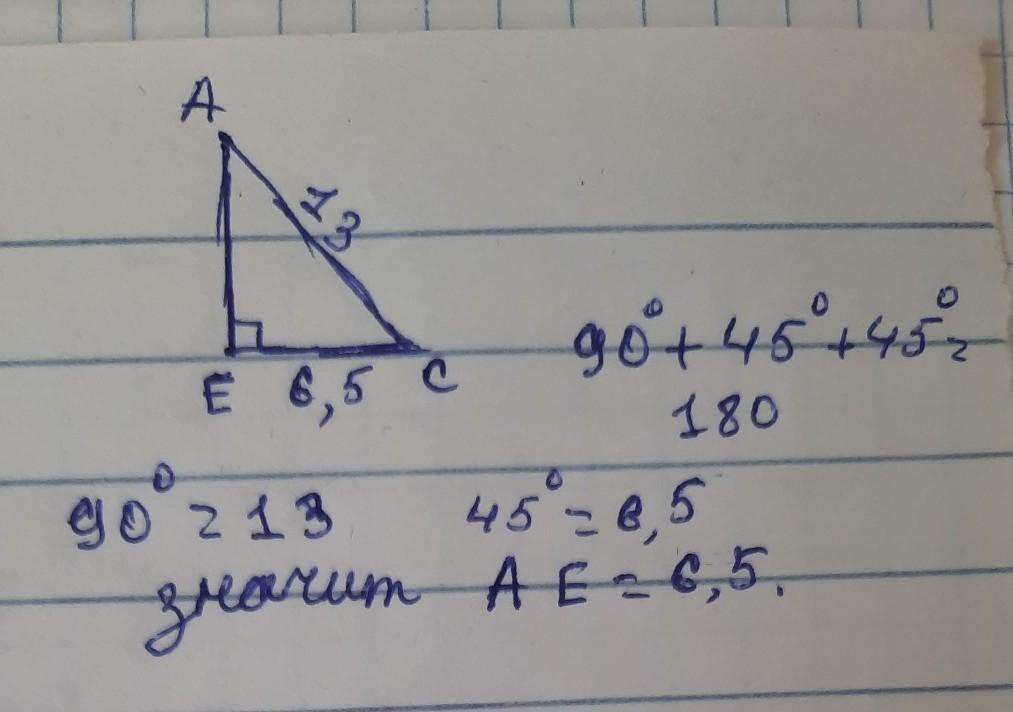 A
13
E 6,5 C
90° + 45° + 45° =
180
90° = 13 45° = 6,5
значит AE = 6,5.